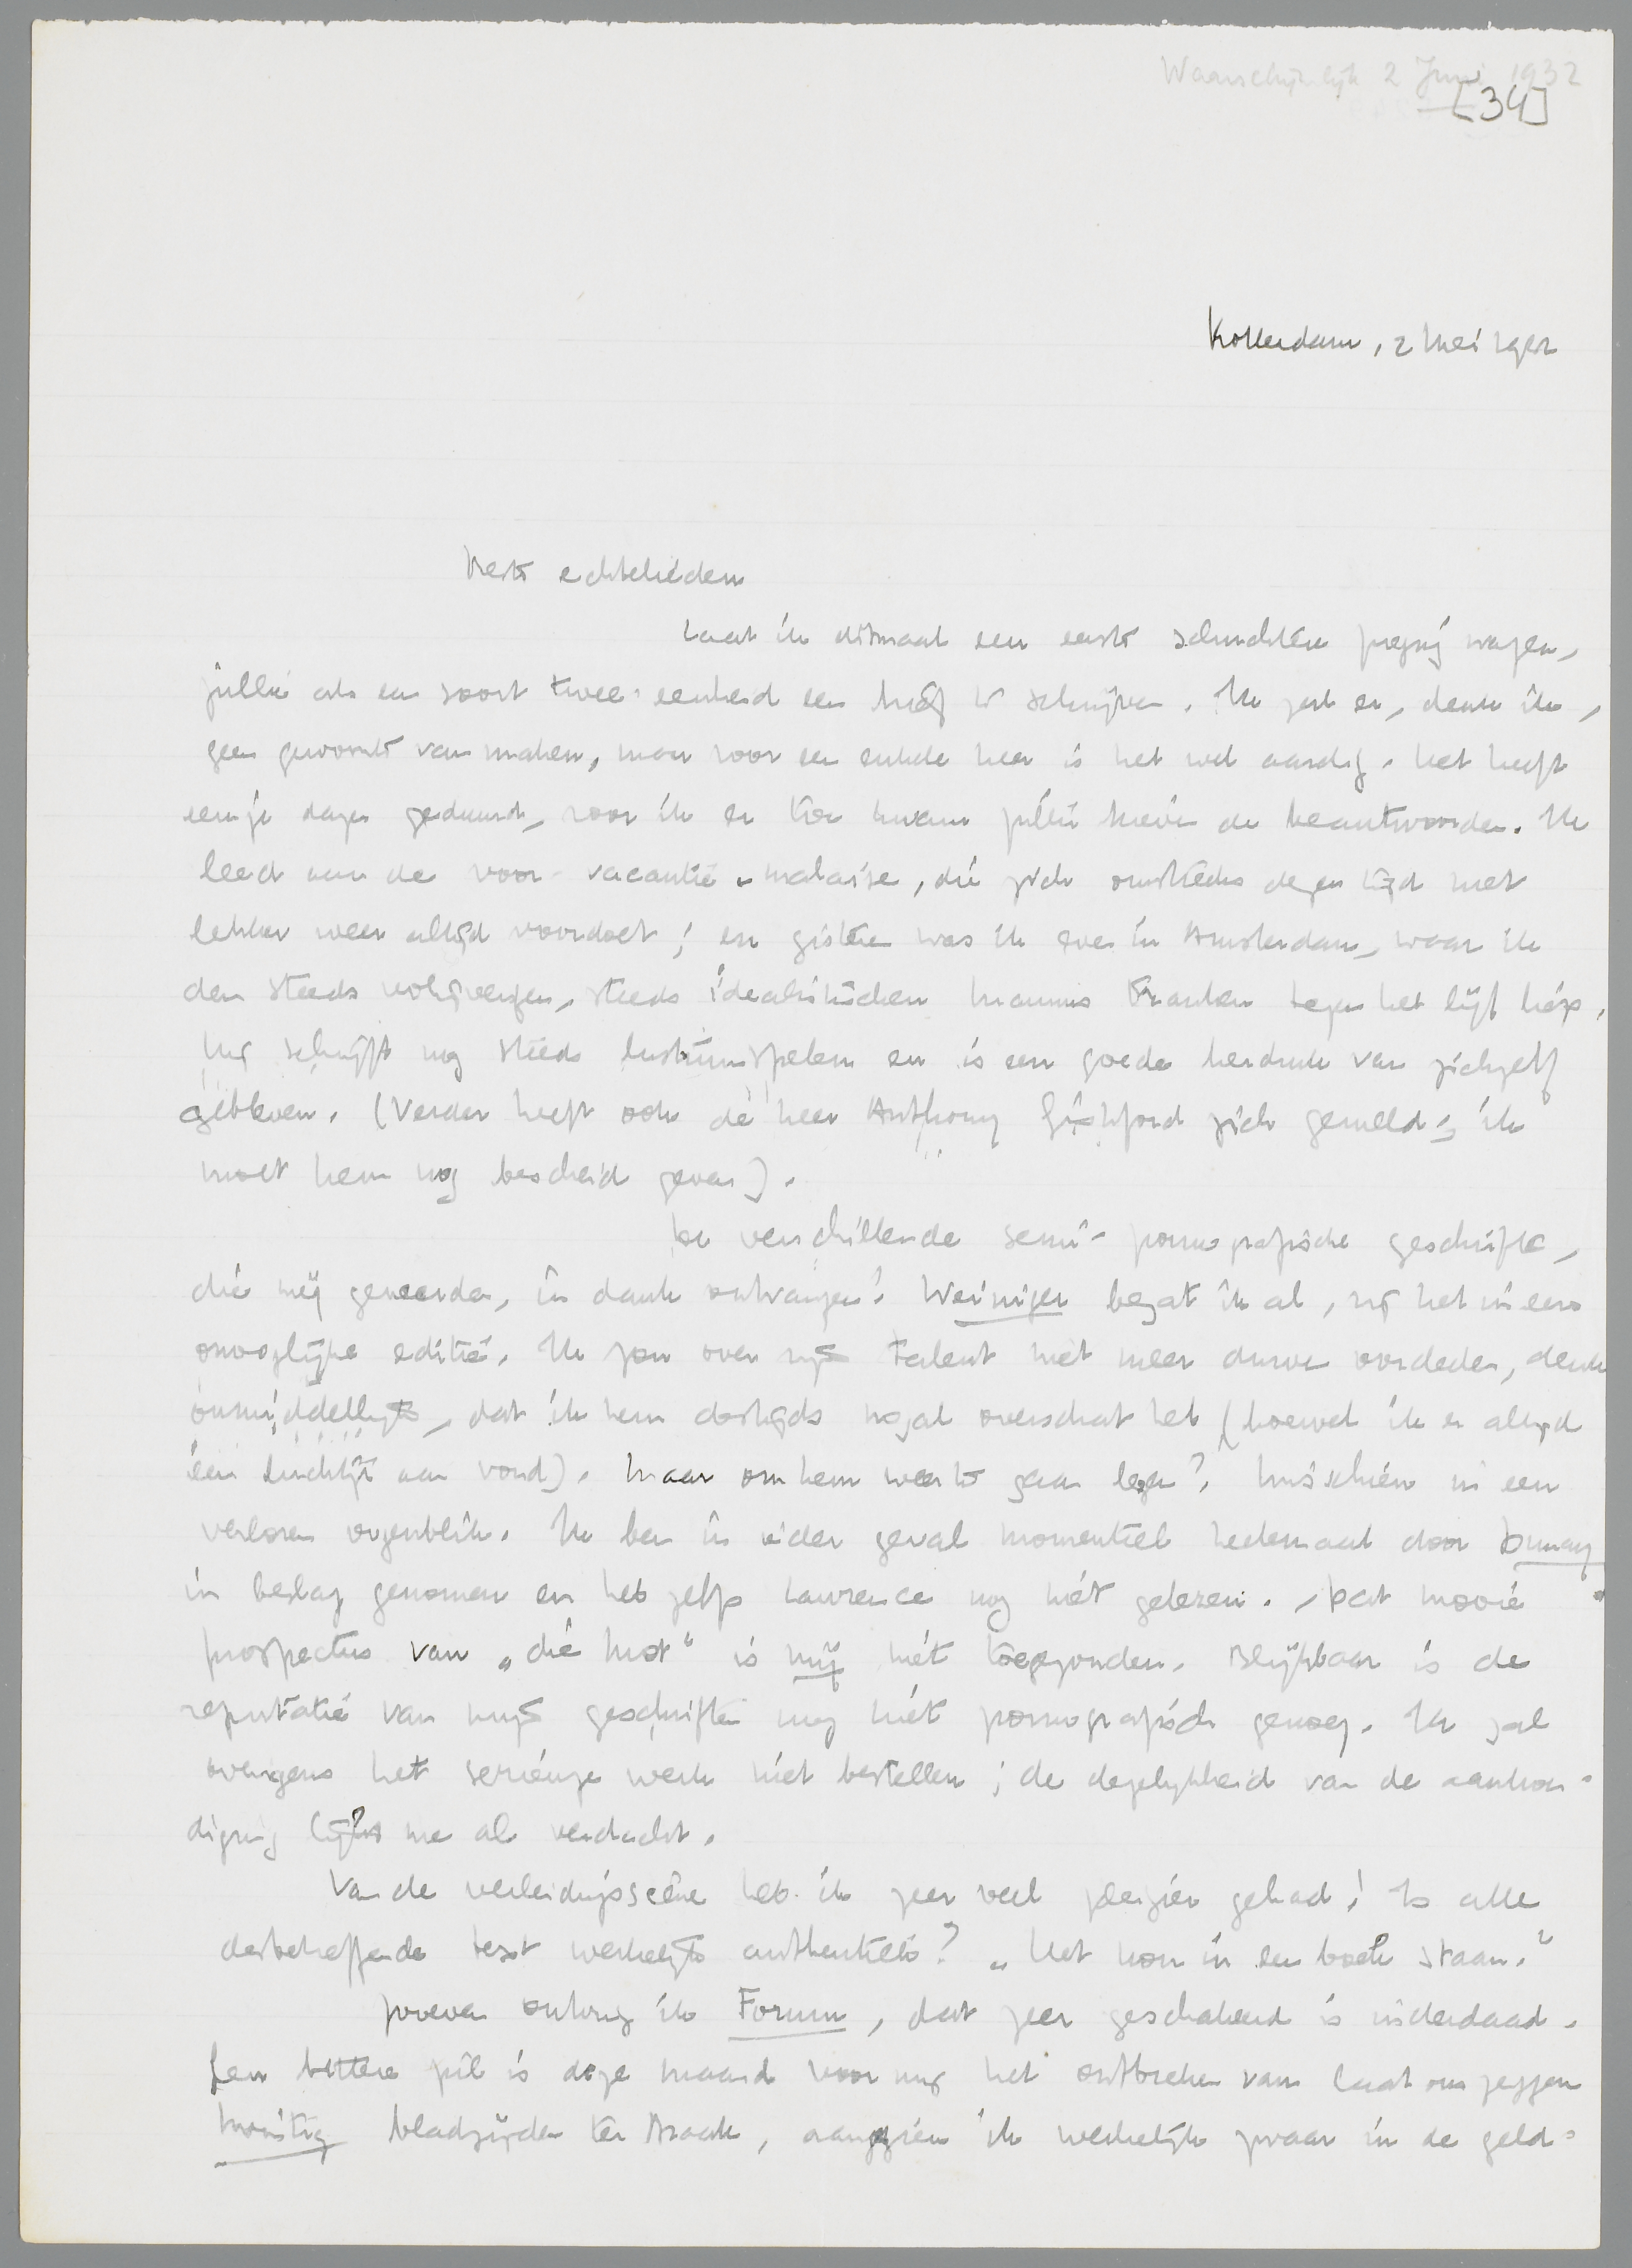 Waarschijnlijk 2 Juni 1932
[34]
Rotterdam, 2 Mei 1932
Beste echtelieden
Laat ik ditmaal een eerste schuchtere poging wagen,
jullie als een soort twee-eenheid een brief te schrijven. Ik zal er, denk ik,
geen gewoonte van maken, maar voor een enkele keer is het wel aardig. Het heeft
eenige dagen geduurd, voor ik er toe kwam jullie brieven te beantwoorden. Ik
leed aan de voor-vacantie-malaise, die zich omstreeks dezen tijd met
lekker weer altijd voordoet; en gisteren was ik even in Amsterdam, waar ik
den steeds wolijverigen, steeds idealistischen Mannus Franken tegen het lijf liep.
Hij schrijft nog steeds lustrumspelen en is een goede herdruk van zichzelf
gebleven. (Verder heeft ook de heer Anthony Gishford zich gemeld; ik
moet hem nog bescheid geven).
De verschillende semi-pornografische geschriften,
die mij geworden, in dank ontvangen! Weininger bezat ik al, zij het in een
onooglijke editie. Ik zou over zijn talent niet meer durven oordeelen, denk
onmiddellijk, dat ik hem destijds nogal overschat heb (hoewel ik er altijd
een luchtje aan vond). Maar om hem weer te gaan lezen? Misschien in een
verloren oogenblik. Ik ben in ieder geval momenteel heelemaal door Dumay
in beslag genomen en heb zelfs Lawrence nog niet gelezen. Dat mooie
prospectus van „die Mot" is mij niet toegezonden. Blijkbaar is de
reputatie van mijn geschriften nog niet pornografisch genoeg. Ik zal
overigens het serieuze werk niet bestellen; de degelijkheid van de aankon-
diging lijkt me al verdacht.
Van de verleidingsscène heb ik zeer veel plezier gehad! Is alle
desbetreffende text werkelijk authentiek? „Het kon in een boek staan."
Zooeven ontving ik Forum, dat zeer geschakeerd is inderdaad.
Een bittere pil is deze maand voor mij het ontbreken van laat ons zeggen
twintig bladzijden ter Braak, aangezien ik werkelijk zwaar in de geld-